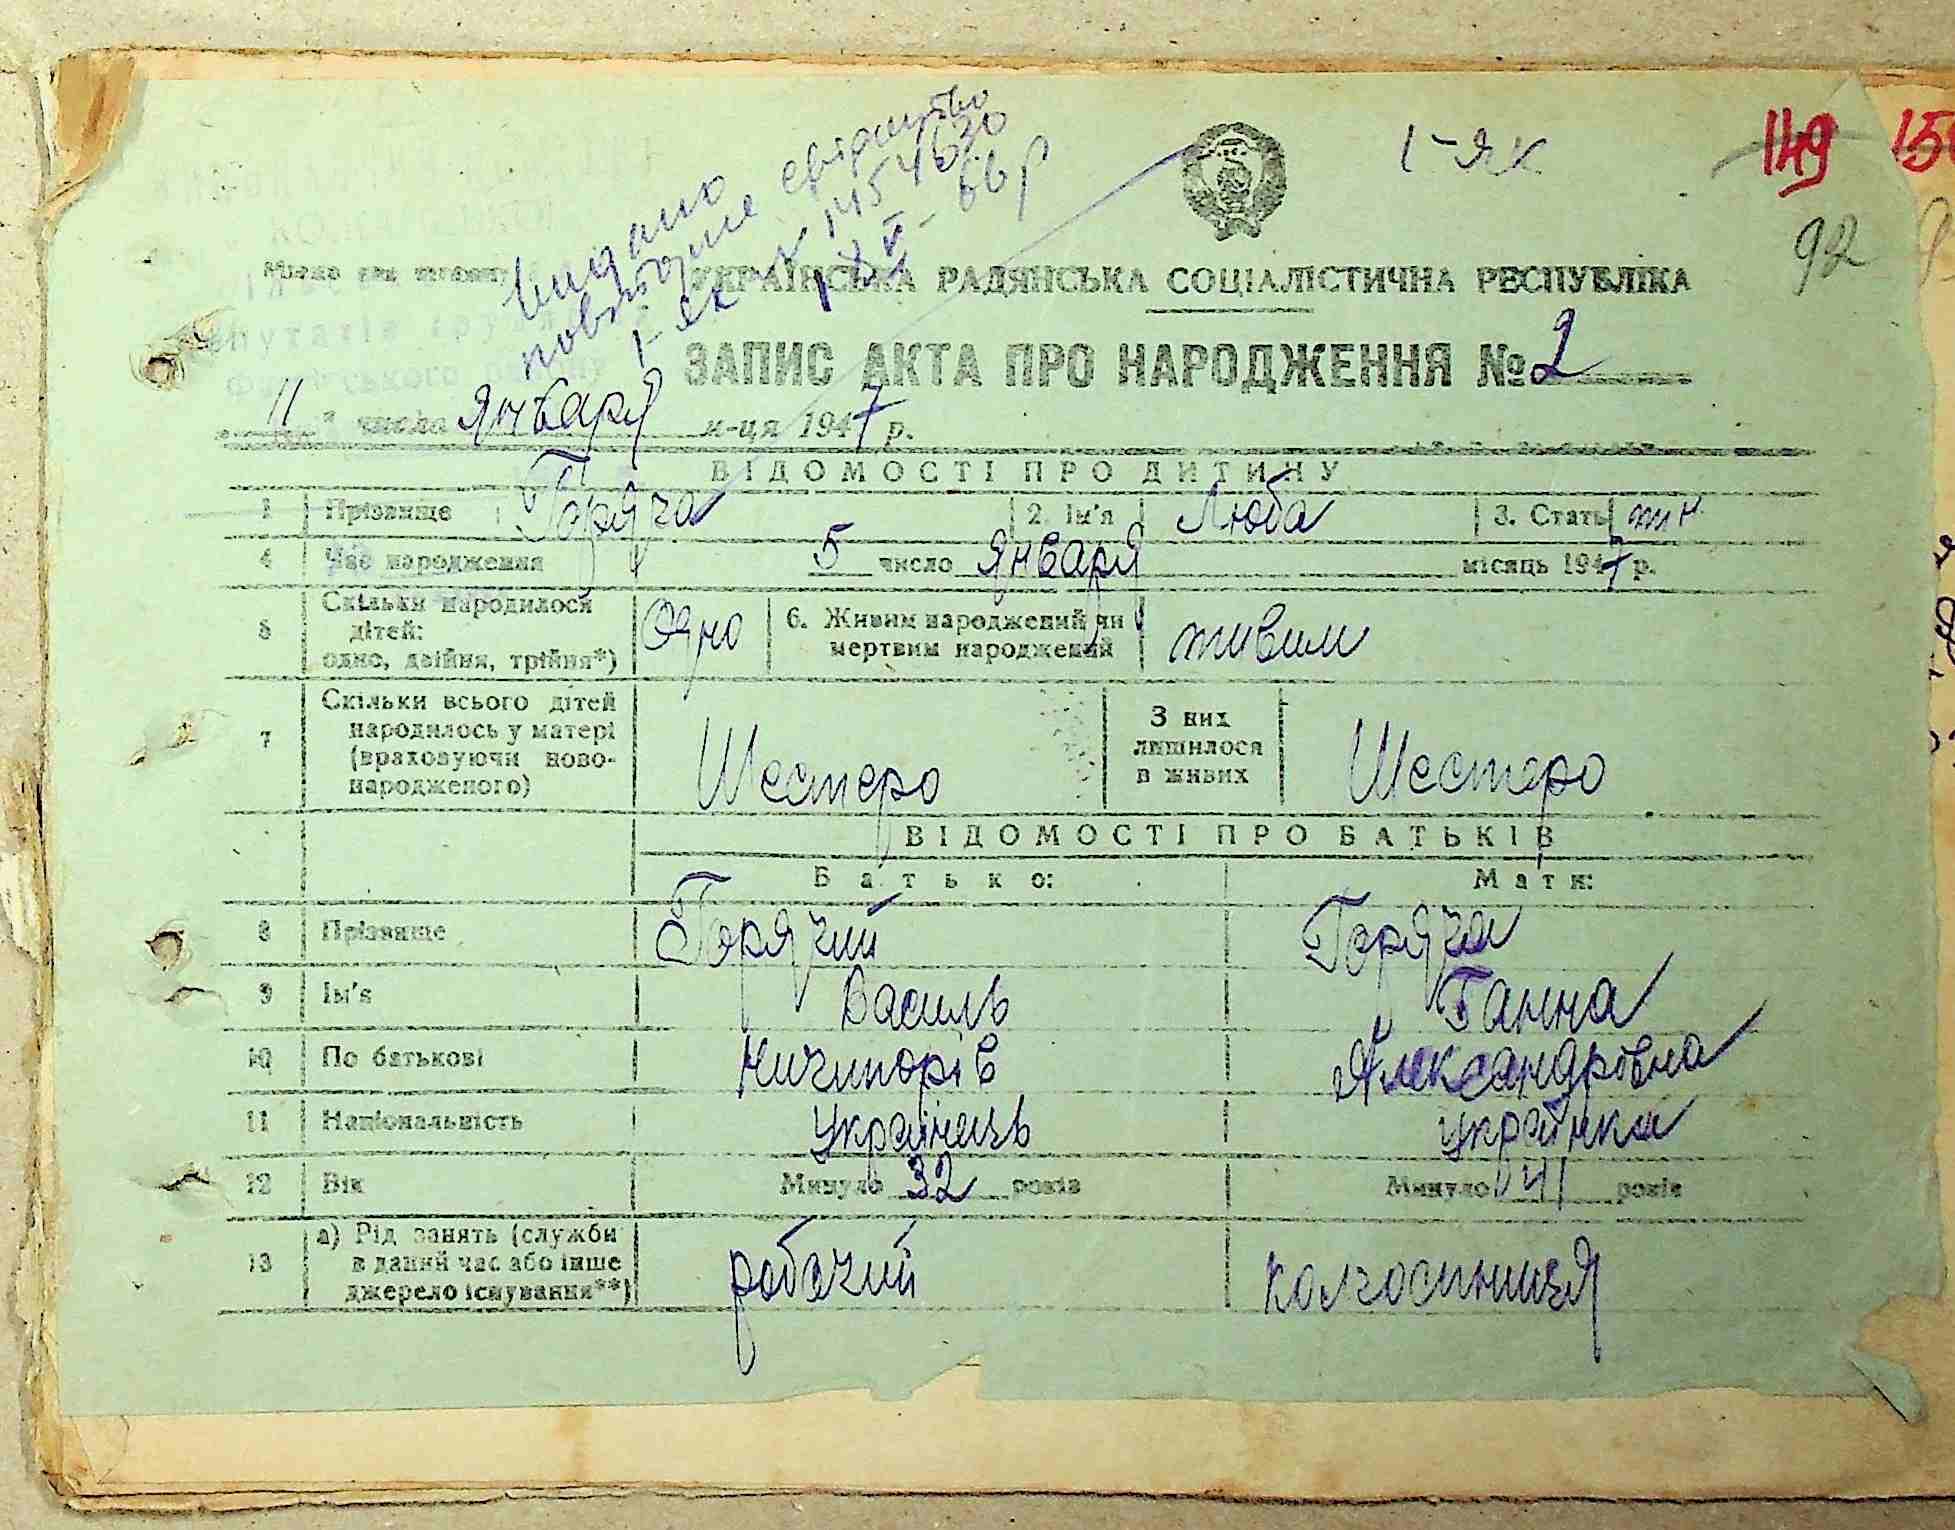 149 15
1-як
92
видано
повторне свідоцтво
1-як № 154630
66 р
Місце для штампу
УКРАЇНСЬКА РАДЯНСЬКА СОЦІАЛІСТИЧНА РЕСПУБЛІКА
ЗАПИС АКТА ПРО НАРОДЖЕННЯ № 2
„ 11 " числа января м-ця 1947 р.
ВІДОМОСТІ ПРО ДИТИНУ
1 Прізвище Горяча 2. Ім'я Люба 3. Стать жн.
4 Час народження 5 число января місяць 1947 р.
5 Скільки народилося дітей: одно, двійня, трійня*) Одно 6. Живим народжений чи мертвим народжений живим
7 Скільки всього дітей народилось у матері (враховуючи новонародженого) Шестеро З них лишилося в живих Шестеро
ВІДОМОСТІ ПРО БАТЬКІВ
Батько: Мати:
8 Прізвище Горячий Горяча
9 Ім'я Василь Ганна
10 По батькові Ничипорів Александрівна
11 Національність українець українка
12 Вік Минуло 32 років Минуло 41 років
13 а) Рід занять (служби в даний час або інше джерело існування**) робочий колгоспниця